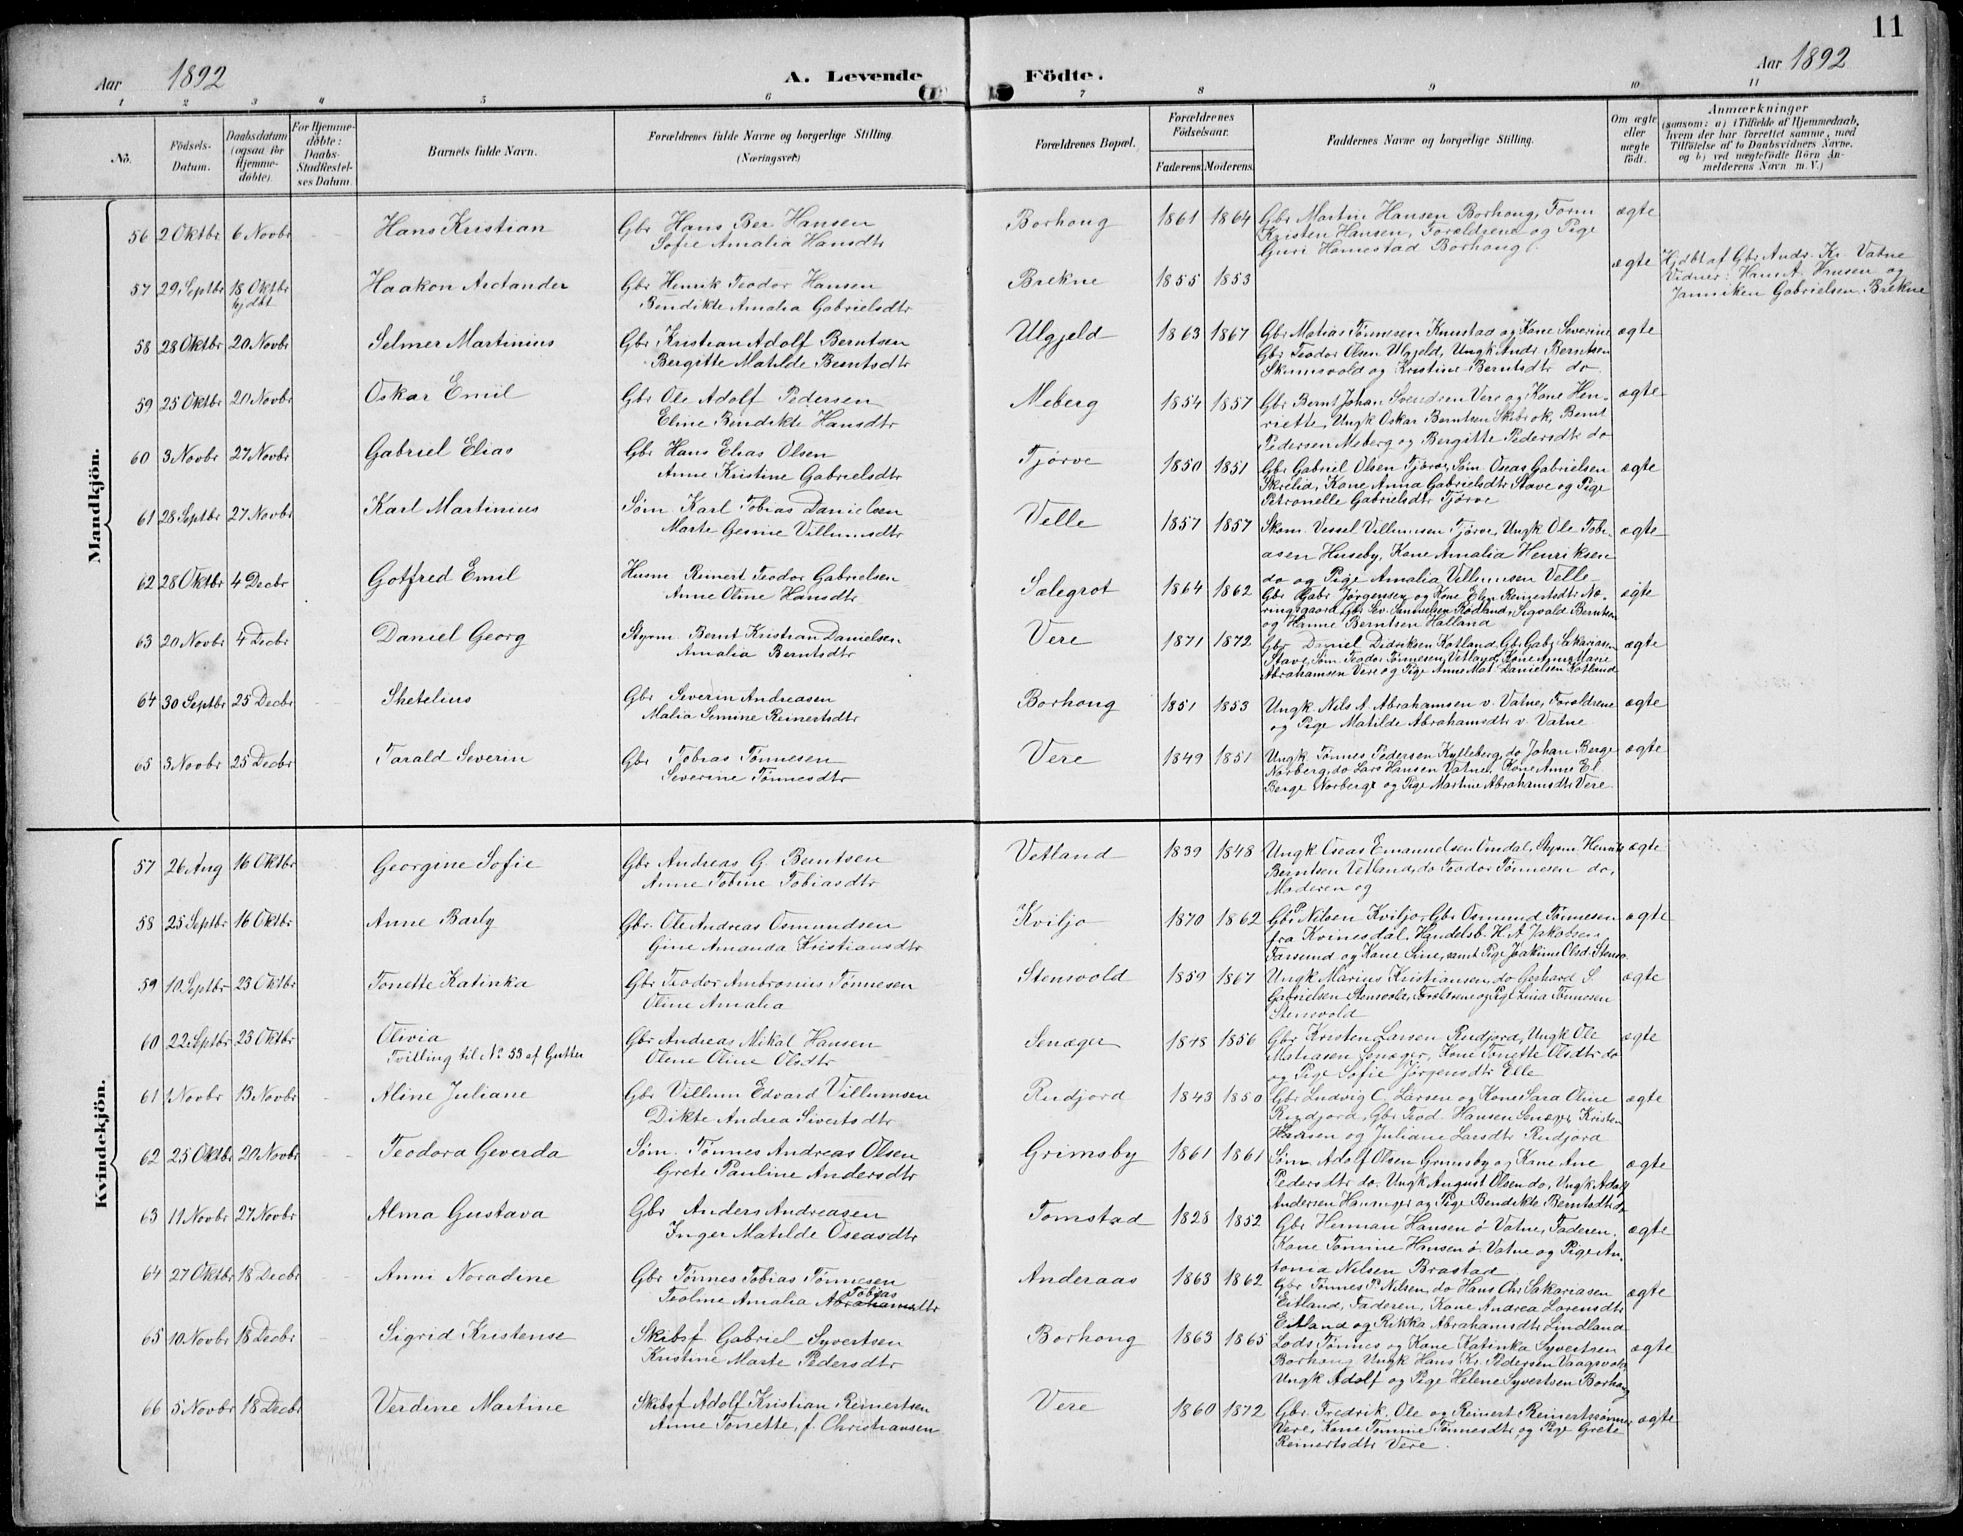 11
Aar 1892
A. Levende Födte.
Aar 1892
1 2 3 4 5 6 7 8 9 10 11
No.
Födsels-Datum.
Daabsdatum (ogsaa for Hjemme-döbte).
For Hjemme-döbte: Daabs-Stadfæstel-ses Datum.
Barnets fulde Navn.
Forældrenes fulde Navne og borgerlige Stilling. (Næringsvei)
Forældrenes Bopæl.
Forældrenes Födselsaar.
Faderens. Moderens.
Faddernes Navne og borgerlige Stilling.
Om ægte eller uægte födt.
Anmærkninger
(saasom: a) i Tilfælde af Hjemmedaab, hvem der har forrettet samme, med Tilföielse af to Daabsvidners Navne. og b) ved uægtefödte Börn An-melderens Navn m. V.)
Mandkjön.
56 2 Oktbr 6 Novbr Hans Kristian Gbr Hans Ber. Hansen Borhong 1861 1864 Gbr Martin Hansen Borhong, Tørm ægte
Sofie Amalia Hansdtr Kristen Hansen, Forældrene og Pige
Guri Homestad Borhong.
57 29 Septbr 18 Oktbr Haakon Arctander Gbr Henrik Teodor Hansen Brekne 1855 1853 ægte Hjdbt af Gbr. Andr. Kr. Vatne
hjdbt Bendikte Amalia Gabrielsdtr Vidner: Hans A. Hansen og
Janniken Gabrielsen Brekne
58 28 Oktbr 20 Novbr Selmer Martinius Gbr Kristian Adolf Berntsen Ulgjeld 1863 1867 Gbr Matias Tønnesen Knustad og Kone Severine ægte
Bergitte Matilde Berntsdtr Gbr Teodor Olsen Ulgjeld, Ungk Andr. Berntsen
Skumsvold og Kristine Berntsdtr do
59 25 Oktbr 20 Novbr Oskar Emil Gbr Ole Adolf Pedersen Meberg 1854 1857 Gbr Bernt Johan Svendsen Vere og Kone Hen- ægte
Eline Bendikte Hansdtr riette, Ungk Oskar Berntsen Skibrok, Bernt
Pedersen Meberg og Bergitte Pedersdtr do
60 3 Novbr 27 Novbr Gabriel Elias Gbr Hans Elias Olsen Tjørve 1850 1851 Gbr Gabriel Olsen Tjørve, Søm. Oseas Gabrielsen ægte
Anne Kristine Gabrielsdtr Skrelid, Kone Anna Gabrielsdtr Stave og Pige
Petronelle Gabrielsdtr Tjørve
61 28 Septbr 27 Novbr Karl Martinius Søm. Karl Tobias Danielsen Velle 1857 1857 Skom. Vessel Villumsen Tjørve, Ungk Ole Tobi- ægte
Marte Gesine Villumsdtr asen Huseby, Kone Amalia Henriksen
do og Pige Amalia Villumsen Velle
62 28 Oktbr 4 Decbr Gotfred Emil Husm Reinert Teodor Gabrielsen Sælegrot 1864 1862 Gbr Gabr Jørgensen og Kone Elen Reinertsdtr Næ- ægte
Anne Oline Hansdtr ringsgaard, Gbr Sev. Samuelsen Rødland, Sigvald Berntsen
og Hanne Berntsen Halland
63 20 Novbr 4 Decbr Daniel Georg Styrm. Bernt Kristian Danielsen Vere 1871 1872 Gbr Daniel Didriksen Kotland, Gbr Gabr Sakariasen ægte
Amalia Berntsdtr Stave, Søm. Teodor Tønnesen Vetland, Kone Anne Marie
Abrahamsen Vere og Pige Anne Mat. Danielsen Kotland
64 30 Septbr 25 Decbr Sketelius Gbr Severin Andreasen Borhong 1851 1853 Ungk. Nils A. Abrahamsen v. Vatne, Forældrene ægte
Malia Semine Reinertsdtr og Pige Matilde Abrahamsdtr v. Vatne
65 3 Novbr 25 Decbr Tarald Severin Gbr Tobias Tønnesen Vere 1849 1851 Ungk Tønnes Pedersen Kylleberg, do Johan Berge ægte
Severine Tønnesdtr Norberg, do Lars Hansen Vatne, Kone Anne El.
Berge Norberg og Pige Martine Abrahamsdtr Vere
Kvindekjön.
57 26 Aug 16 Oktbr Georgine Sofie Gbr Andreas G. Berntsen Vetland 1839 1848 Ungk Oseas Emanuelsen Omdal, Styrm Henrik ægte
Anne Tobine Tobiasdtr Berntsen Vetland, do Teodor Tønnesen do,
Moderen og
58 25 Septbr 16 Oktbr Anne Barly Gbr. Ole Andreas Osmundsen Kviljo 1870 1862 Gbr P Nilsen Kviljo, Gbr Osmund Tønnesen ægte
Gine Amanda Kristiansdtr fra Kvinesdal, Handelsb. H. A. Jakobsen
Farsund og Kone Sine, samt Pige Joakime Olsd. Stensv.
59 10 Septbr 23 Oktbr Tonette Katinka Gbr Teodor Ambrosius Tønnesen Stensvold 1859 1867 Ungk Marius Kristiansen, do Gerhard S. ægte
Oline Amalia Gabrielsen Stensvold, Forældrene og Pige Lina Tønnesen
Stensvold
60 22 Septbr 23 Oktbr Olivia Gbr Andreas Mikal Hansen Senæger 1848 1856 Gbr Kristen Larsen Rudjord, Ungk Ole ægte
Tvilling til No 53 af Gutter Olene Oline Olsdtr Matiasen Senæger, Kone Tonette Olsdtr do
og Pige Sofie Jørgensdtr Elle
61 1 Novbr 13 Novbr Aline Juliane Gbr Villum Edvard Villumsen Rudjord 1843 1850 Gbr Ludvig C. Larsen og Kone Sara Oline ægte
Dikte Andrea Sivertsdtr Rudjord, Gbr Teod. Hansen Senæger, Kristen
Hansen og Juliane Larsdtr Rudjord
62 25 Oktbr 20 Novbr Teodora Geverda Søm. Tønnes Andreas Olsen Grimsby 1861 1861 Søm Adolf Olsen Grimsby og Kone Ane ægte
Grete Pauline Andersdtr Pedersdtr do. Ungk August Olsen do, Ungk Adolf
Andersen Hananger og Pige Bendikte Berntsdtr do
63 11 Novbr 27 Novbr Alma Gustava Gbr Anders Andreasen Tomstad 1828 1852 Gbr Herman Hansen ø. Vatne, Faderen, ægte
Inger Matilde Oseasdtr Kone Tomine Hansen ø. Vatne og Pige An-
tonia Nelsen Brastad
64 27 Oktbr 18 Decbr Anni Noradine Gbr Tønnes Tobias Tønnesen Anderaas 1863 1862 Gbr Tønnes P. Nilsen, do Hans Chr Sakariasen ægte
Teoline Amalia Abrahamsdtr Tobias Eitland, Faderen, Kone Andrea Lorensdtr
Eitland og Rikka Abrahamsdtr Lindland
65 10 Novbr 18 Decbr Sigrid Kristense Skibsf Gabriel Syvertsen Borhong 1863 1865 Lods Tønnes og Kone Katinka Syvertsen ægte
Kristine Marte Pedersdtr Borhong, Ungk Hans Kr. Pedersen Vaagsvold
Ungk Adolf og Pige Helene Syvertsen Borhong
66 5 Novbr 18 Decbr Verdine Martine Skibsf Adolf Kristian Reinertsen Vere 1860 1872 Gbr. Fredrik, Ole og Reinert Reinertssønner ægte
Anne Tonette, f. Christiansen Vere, Kone Tomine Tønnesdtr og Pige Grete
Reinertsdtr Vere.